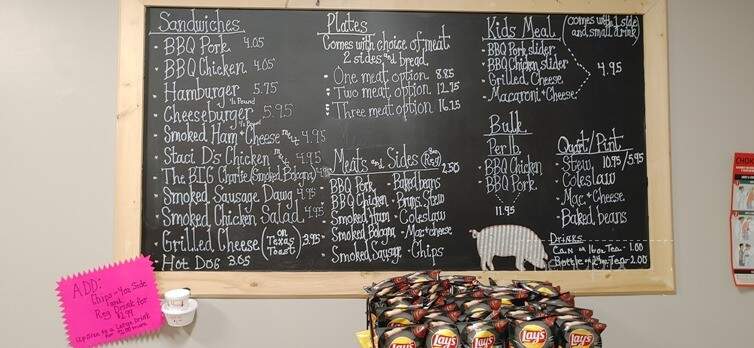 Sandwiches
BBQ Pork 4.05
BBQ Chicken 4.05
Hamburger 5.75
1/3 Pound
Cheeseburger 5.95
1/3 Pound
Smoked Ham + Cheese 4.95
Staci D's Chicken 4.95
The BIG Charlie (Smoked Bologna)
Smoked Sausage Dawg 4.95
Smoked Chicken Salad 4.95
Grilled Cheese (on Texas Toast) 3.95
Hot Dog 3.65
Plates
Comes with choice of meat
2 sides and bread
One meat option 8.85
Two meat option 12.75
Three meat option 16.25
Meats and Sides 2.50
BBQ Pork - Baked beans
BBQ Chicken - Bruns. Stew
Smoked Ham - Coleslaw
Smoked Bologna - Mac + cheese
Smoked Sausage - Chips
Kids Meal (comes with 1 side
and small drink)
BBQ Pork slider
BBQ Chicken slider
Grilled Cheese
Macaroni + Cheese
4.95
Bulk
Per lb
BBQ Chicken
BBQ Pork
11.95
Quart/Pint
Stew 10.95/5.95
Coleslaw
Mac + Cheese
Baked beans
Drinks
Can or 16oz Tea - 1.00
Tea - 2.00
ADD:
Chips - 4oz Side
and
Reg Drink for
$2.99
Up Size to a Large Drink
Lay's
Lay's
Lay's
Lay's
Lay's
CHOK